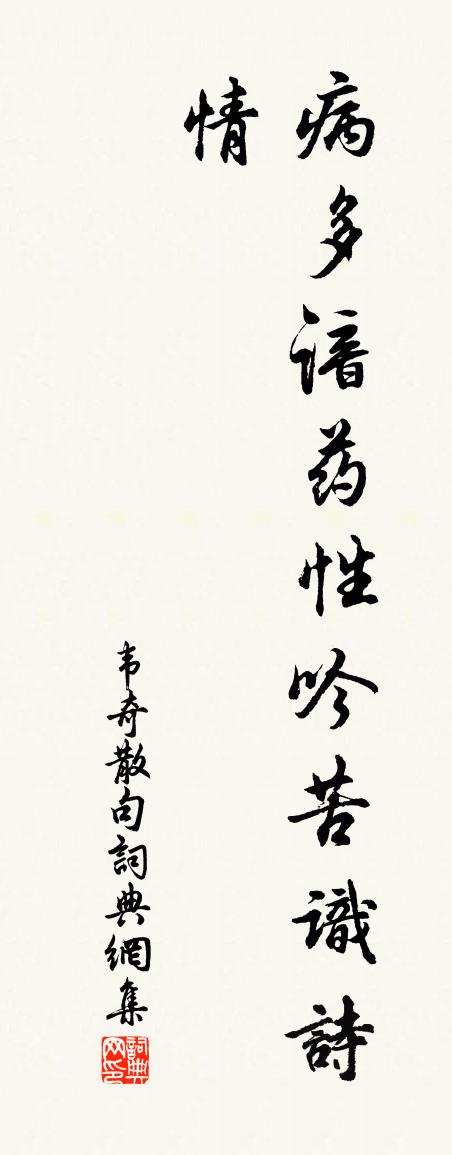 病多谙药性吟苦識詩
情
韦奇散句詞典網集
詞典网印